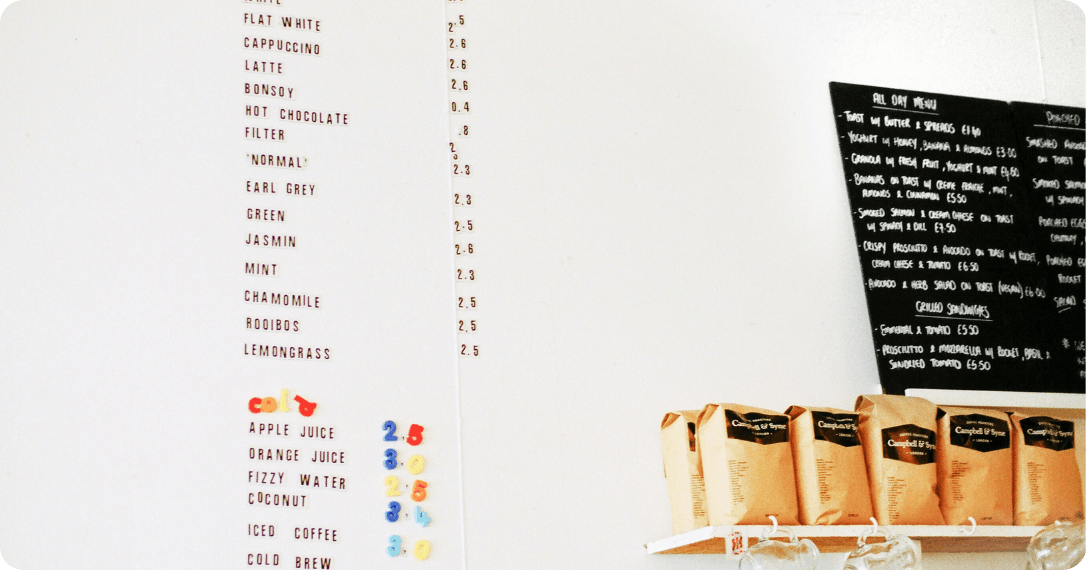 WHITE
FLAT WHITE 2.5
CAPPUCCINO 2.6
LATTE 2.6
BONSOY 2.6
HOT CHOCOLATE 0.4
FILTER .8
2
'NORMAL' 2.3
EARL GREY 2.3
GREEN 2.5
JASMIN 2.6
MINT 2.3
CHAMOMILE 2.5
ROOIBOS 2.5
LEMONGRASS 2.5
cold
APPLE JUICE 2.5
ORANGE JUICE 3.0
FIZZY WATER 2.5
COCONUT 3.4
ICED COFFEE 3.0
COLD BREW
ALL DAY MENU
- TOAST W/ BUTTER & SPREADS
- YOGHURT W/ HONEY, BANANA & ALMONDS £3.00
- GRANOLA W/ FRESH FRUIT, YOGHURT & MINT
- BANANAS ON TOAST W/ CREME FRAICHE, MINT,
ALMONDS & CINNAMON £5.50
- SMOKED SALMON & CREAM CHEESE ON TOAST
W/ SPINACH & DILL £7.50
- CRISPY PROSCIUTTO & AVOCADO ON TOAST W/ ROCKET,
CREAM CHEESE & TOMATO £6.50
- AVOCADO & HERB SALAD ON TOAST (VEGAN) £6.00
GRILLED SANDWICHES
- EMMENTAL & TOMATO £5.50
- PROSCIUTTO & MOZZARELLA W/ ROCKET, BASIL &
SUNDRIED TOMATO £5.50
POACHED
SMASHED
ON TOAST
SMOKED SALMON
W/ SPINACH
POACHED EGGS
CHUTNEY
POACHED
ROCKET
SALAD
Campbell & Syme
LONDON
Campbell & Sy
Campbell & Syme
LONDON
Campbell & Syme
LONDON
Campbell & Syme